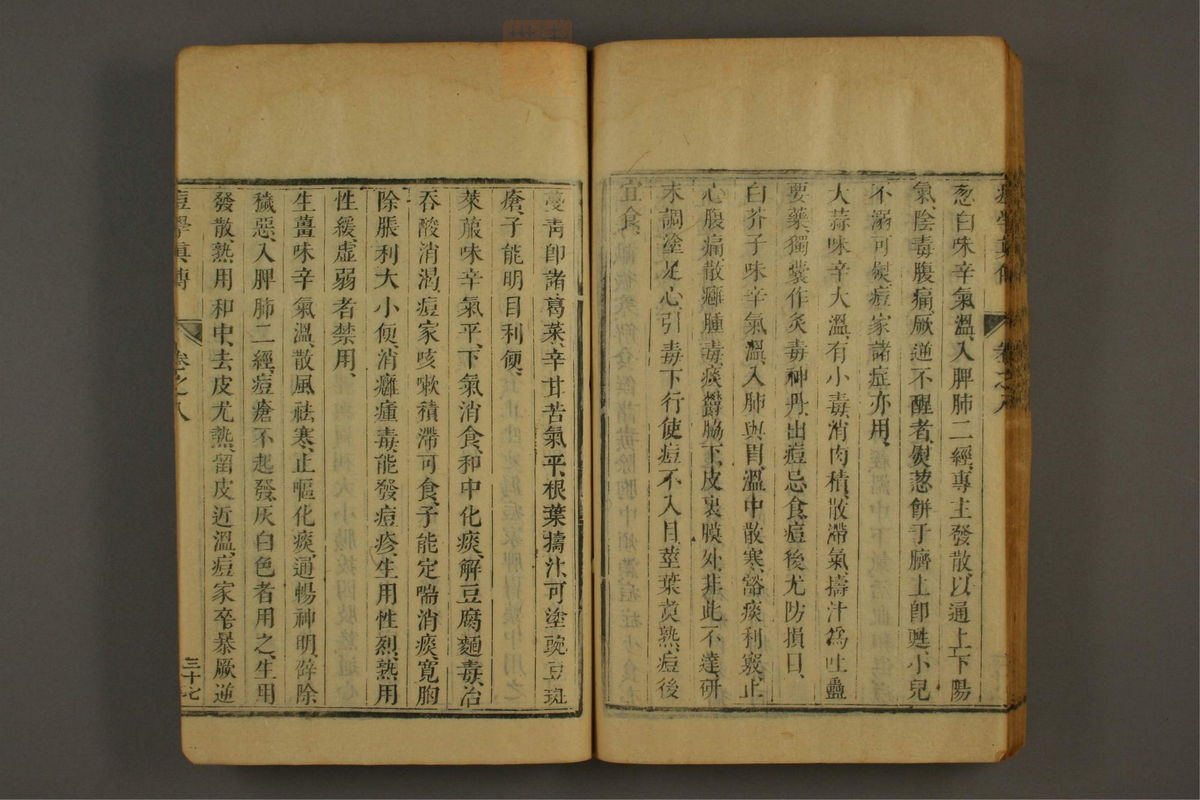 痘學真傳 卷之八
葱白味辛氣溫、入脾肺二經、專主發散、以通上下陽
氣、陰毒腹痛、厥逆不醒者、熨葱餅于臍上、卽甦、小兒
不溺可熨、痘家諸症亦用、
大蒜味辛大溫、有小毒、消肉積、散滯氣、擣汁爲吐蠱
要藥、獨囊作灸毒神丹、出痘忌食、痘後尤防損目、
白芥子味辛氣溫、入肺與胃、溫中散寒、豁痰利竅、止
心腹痛、散癰腫毒、痰欝脇下、皮裏膜外、非此不達、研
末調塗足心、引毒下行、使痘不入目、莖葉煑熟、痘後
宜食、
蔓靑卽諸葛菜、辛甘苦氣平、根葉擣汁、可塗豌豆斑
瘡、子能明目利便、
萊菔味辛氣平、下氣消食、和中化痰、解豆腐麵毒、冶
吞酸消渴、痘家咳嗽積滯可食、子能定喘消痰、寬胸
除脹、利大小便、消癰瘇毒、能發痘疹、生用性烈、熟用
性緩、虛弱者禁用、
生薑味辛氣溫、散風祛寒、止嘔化痰、通暢神明、辟除
穢惡、入脾肺二經、痘瘡不起發、灰白色者用之、生用
發散、熟用和中、去皮尤熱、留皮近溫、痘家卒暴厥逆
痘學眞傳 卷之八 三十七